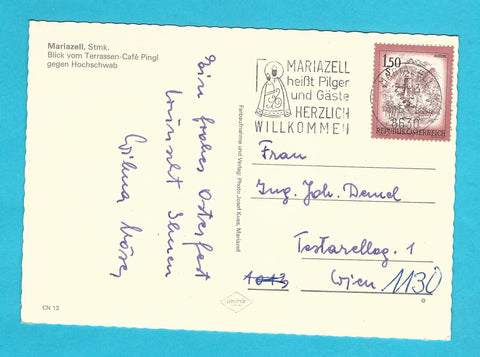 Mariazell, Stmk.
Blick vom Terrassen-Café Pingl
gegen Hochschwab
MARIAZELL
heißt Pilger
und Gäste
HERZLICH
WILLKOMMEN
1.50
REPUBLIK ÖSTERREICH
8630
Ein frohes Osterfest
wünscht Ihnen
Wilma Moser
Farbaufnahme und Verlag: Photo Josef Kuss, Mariazell
Frau
Ing. Joh. Demel
Testarellog. 1
1013
Wien 1130
CN 13